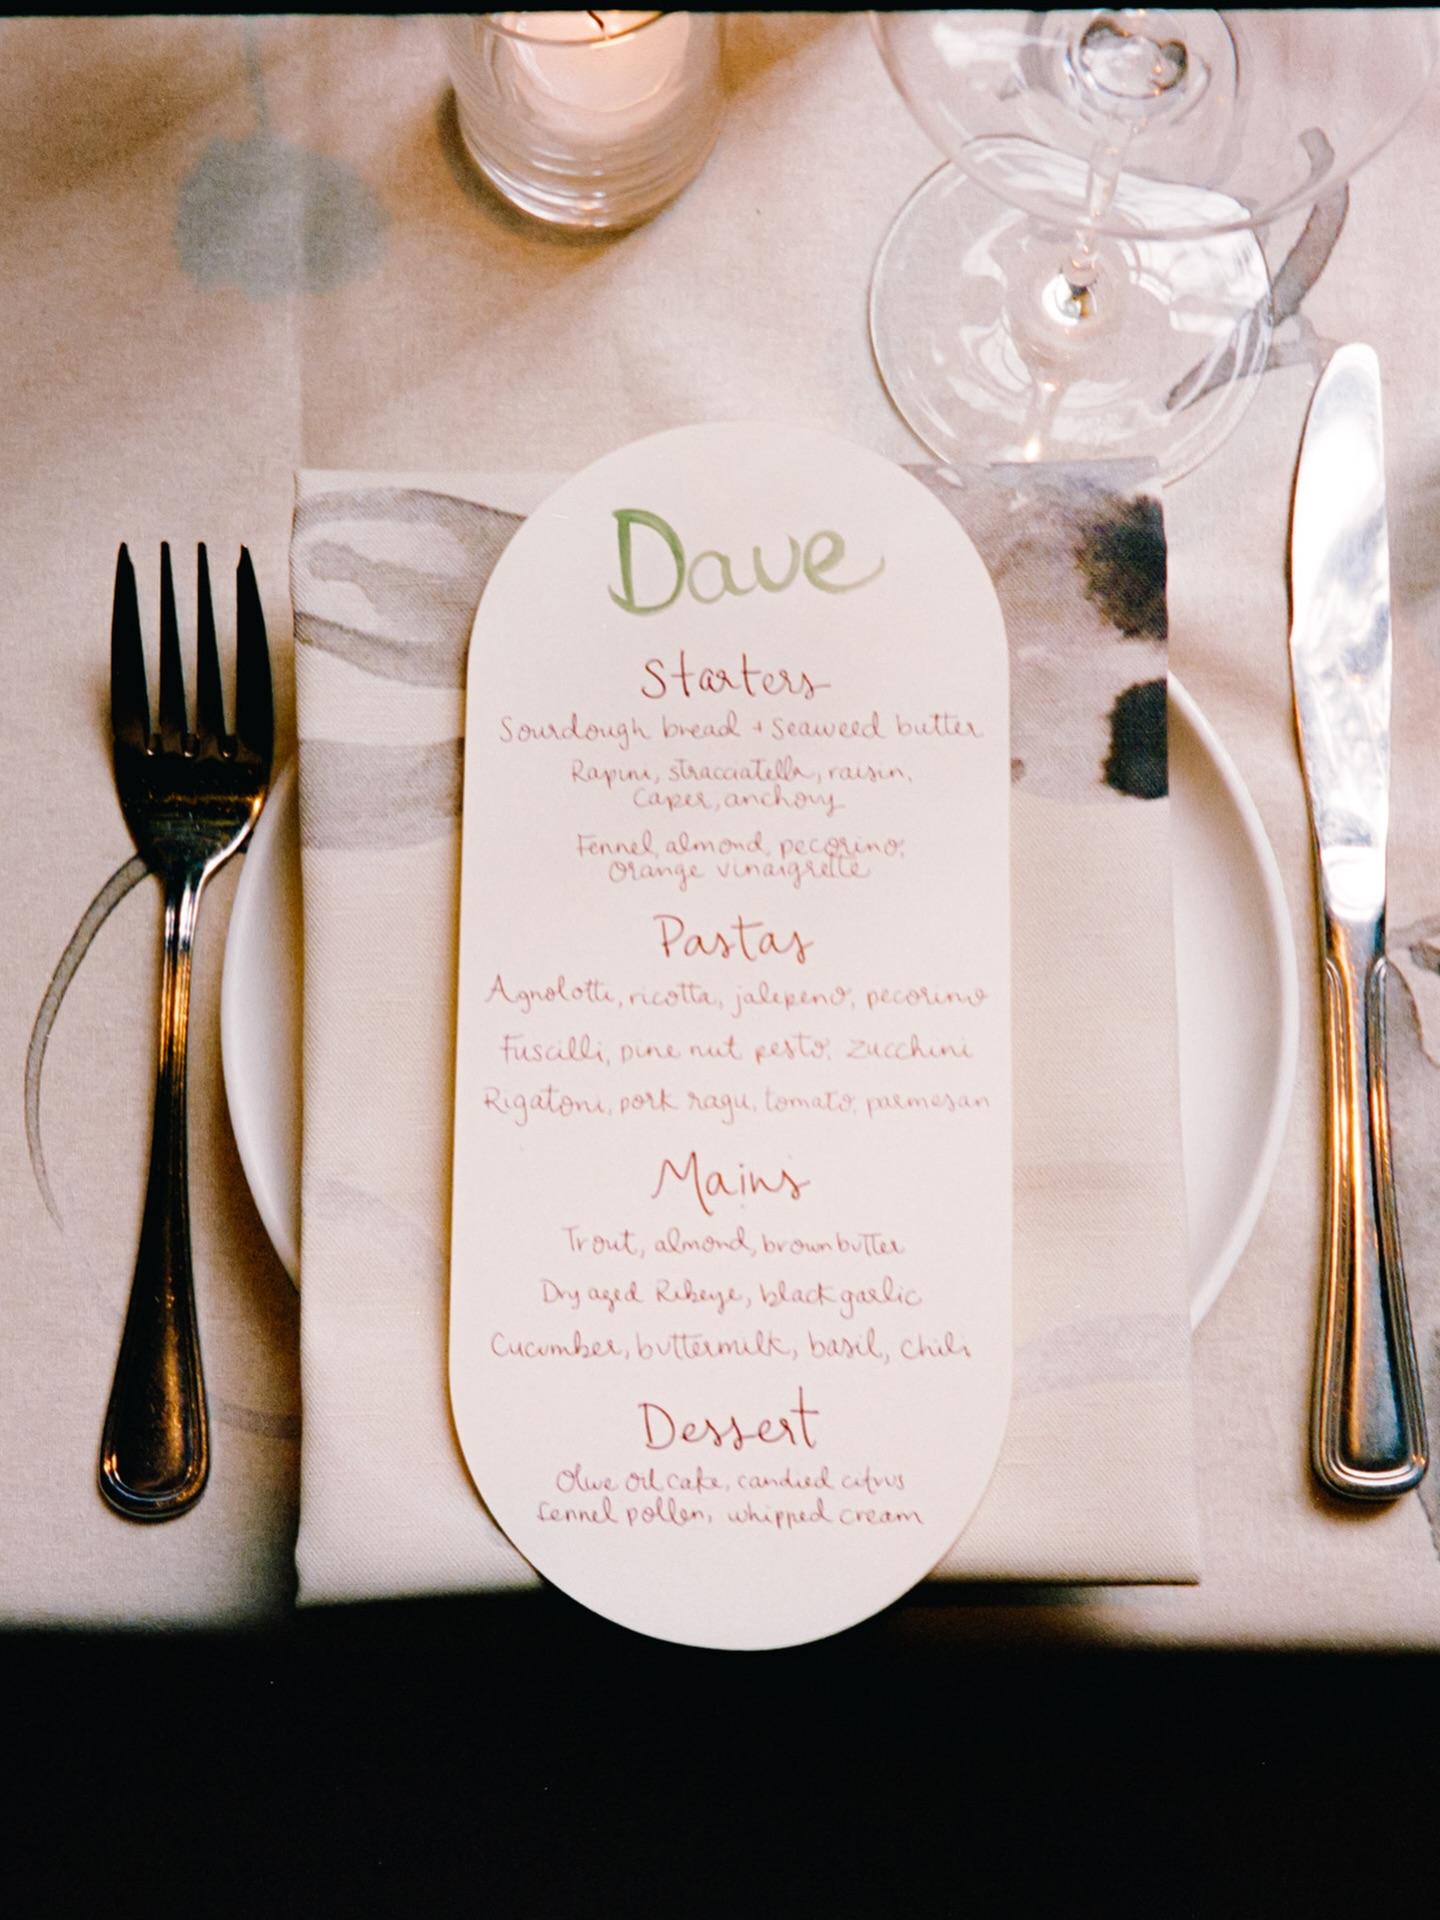 Dave
Starters
Sourdough bread + Seaweed butter
Rapini, stracciatella, raisin,
Caper, anchovy
Fennel, almond, pecorino,
Orange vinaigrette
Pastas
Agnolotti, ricotta, jalepeno, pecorino
Fuscilli, pine nut pesto, zucchini
Rigatoni, pork ragu, tomato, parmesan
Mains
Trout, almond, brown butter
Dry aged Ribeye, black garlic
Cucumber, buttermilk, basil, chili
Dessert
Olive oil cake, candied citrus
fennel pollen, whipped cream